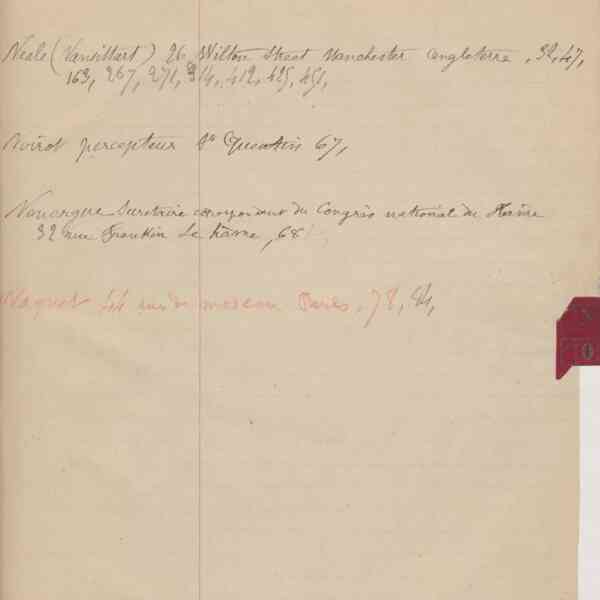 Neale (Vansittart) 26 Wilton Street Manchester angleterre, 32, 47,
163, 267, 271, 314, 412, 425, 451,
Noirot percepteur St Quentin 67,
Secretaire correspondant du Congrès national du Havre
32 rue Franklin Le Havre, 68
Naquet 44 rue de moscou Paris, 78, 84,
N
O